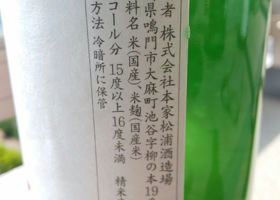 者 株式会社本家松浦酒造場
県鳴門市大麻町池谷字柳の本19
料名 米(国産)、米麹(国産米)
コール分 15度以上16度未満 精米
方法 冷暗所に保管